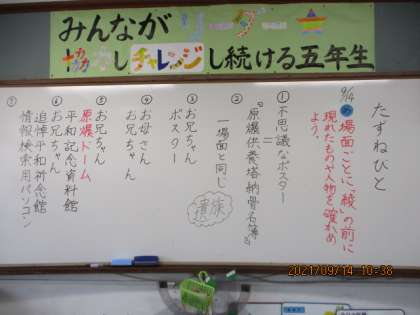 みんなが
協力しチャレンジし続ける五年生
たずねびと
9/14
め 場面ごとに「綾」の前に
現れたものや人物を確かめ
よう。
① 不思議なポスター
=
『原爆供養塔納骨名簿』
② 一場面と同じ
遺族
③ お兄ちゃん
ポスター
④ お母さん
お兄ちゃん
⑤ お兄ちゃん
原爆ドーム
平和記念資料館
⑥ お兄ちゃん
追悼平和祈念館
情報検索用パソコン
⑦
2021/09/14 10:38